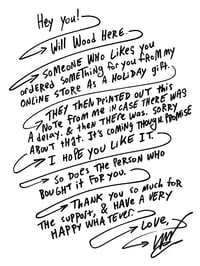 Hey you!
Will Wood Here.
Someone who likes you
ordered something for you from my
online store as a holiday gift.
They then printed out this
note from me in case there was
a delay. & then there was. Sorry
about that. It's coming though. Promise
I hope you like it.
So does the person who
bought it for you.
Thank you so much for
the support, & have a very
happy whatever.
Love,